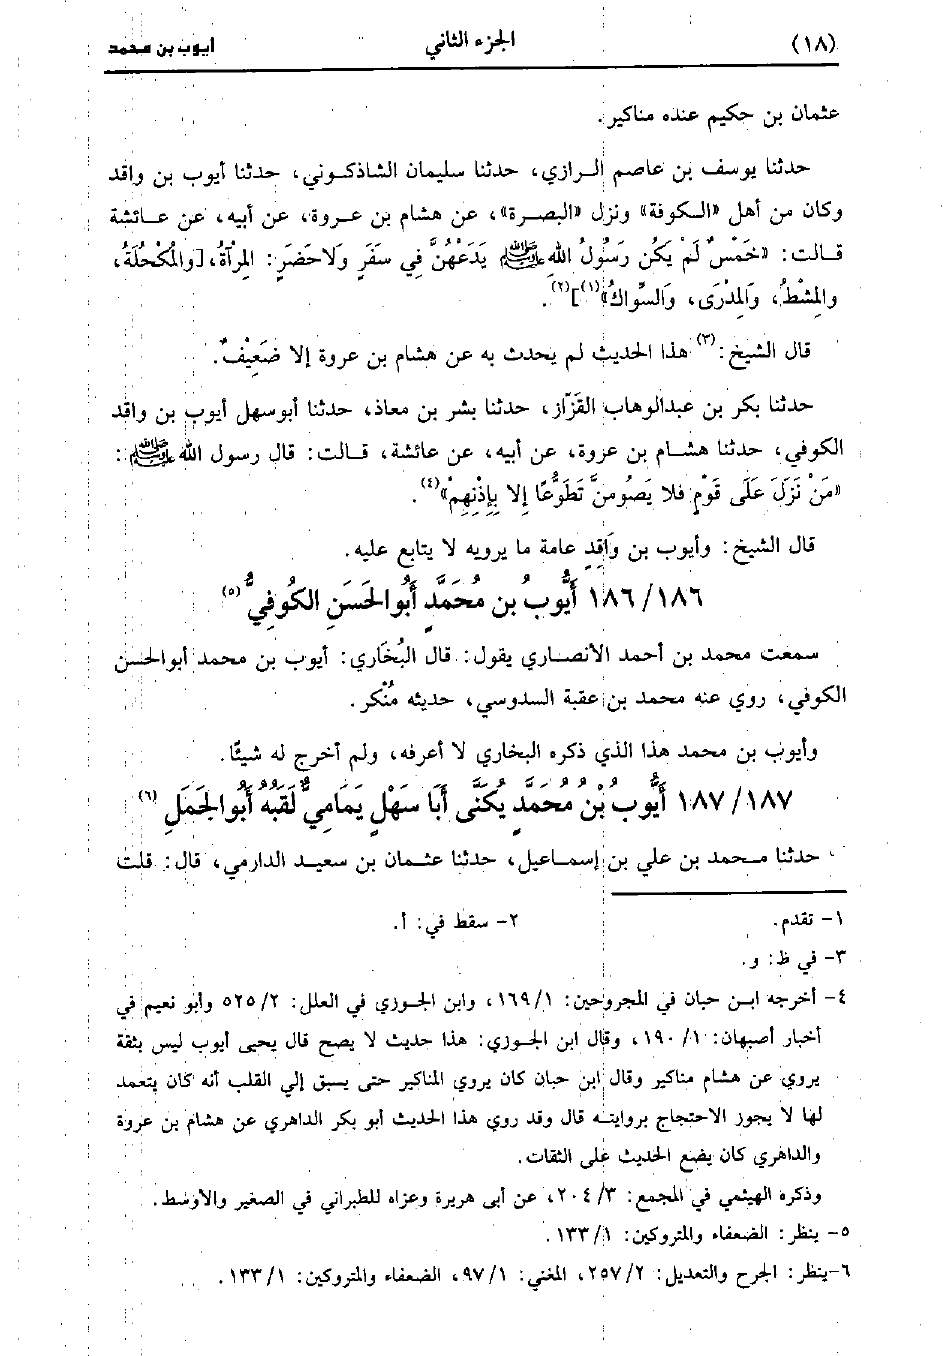 (١٨) الجزء الثاني ايوب بن محمد
عثمان بن حكيم عنده مناكير.
حدثنا يوسف بن عاصم الرازي، حدثنا سليمان الشاذكوني، حدثنا أيوب بن واقد
وكان من أهل «الكوفة» ونزل «البصرة»، عن هشام بن عروة، عن أبيه، عن عائشة
قالت: «خَمْسٌ لَمْ يَكُن رَسُولُ اللهِ ﷺ يَدَعْهُنَّ فِي سَفَرٍ وَلاحَضَرٍ: المِرْآةُ، [والمُكْحُلَةُ،
والمِشْطُ، وَالمِدْرَى، وَالسِّواكُ»(١)](٢).
قال الشيخ:(٣) هذا الحديث لم يحدث به عن هشام بن عروة إلا ضَعِيْفٌ.
حدثنا بكر بن عبدالوهاب القَزّاز، حدثنا بشر بن معاذ، حدثنا أبوسهل أيوب بن واقد
الكوفي، حدثنا هشام بن عروة، عن أبيه، عن عائشة، قالت: قال رسول الله ﷺ:
«مَنْ نَزَلَ عَلَى قَوْمٍ فلا يَصُومنَّ تَطَوُّعًا إلا بِإِذْنِهِمْ»(٤).
قال الشيخ: وأيوب بن وَاقِدٍ عامة ما يرويه لا يتابع عليه.
١٨٦/ ١٨٦ أَيُّوبُ بن مُحَمَّدٍ أَبُوالحَسَنِ الكُوفِيُّ(٥)
سمعت محمد بن أحمد الأنصاري يقول: قال البُخَاري: أيوب بن محمد أبوالحسن
الكوفي، روي عنه محمد بن عقبة السدوسي، حديثه مُنْكر.
وأيوب بن محمد هذا الذي ذكره البخاري لا أعرفه، ولم أخرج له شيئًا.
١٨٧/ ١٨٧ أَيُّوبُ بْنُ مُحَمَّدٍ يُكَنَّى أَبَا سَهْلٍ يَمَامِيٌّ لَقَبُهُ أَبُوالجَمَلِ(٦)
حدثنا محمد بن علي بن إسماعيل، حدثنا عثمان بن سعيد الدارمي، قال: قلت
١- تقدم. ٢- سقط في: أ.
٣- في ظ: و.
٤- أخرجه ابن حبان في المجروحين: ١/ ١٦٩، وابن الجوزي في العلل: ٢/ ٥٢٥ وأبو نعيم في
أخبار أصبهان: ١/ ١٩٠، وقال ابن الجوزي: هذا حديث لا يصح قال يحيى أيوب ليس بثقة
يروي عن هشام مناكير وقال ابن حبان كان يروي المناكير حتى يسبق إلي القلب أنه كان يتعمد
لها لا يجوز الاحتجاج بروايته قال وقد روي هذا الحديث أبو بكر الداهري عن هشام بن عروة
والداهري كان يضع الحديث على الثقات.
وذكره الهيثمي في المجمع: ٣/ ٢٠٤، عن أبى هريرة وعزاه للطبراني في الصغير والأوسط.
٥- ينظر: الضعفاء والمتروكين: ١/ ١٣٣.
٦-ينظر: الجرح والتعديل: ٢/ ٢٥٧، المغني: ١/ ٩٧، الضعفاء والمتروكين: ١/ ١٣٣.